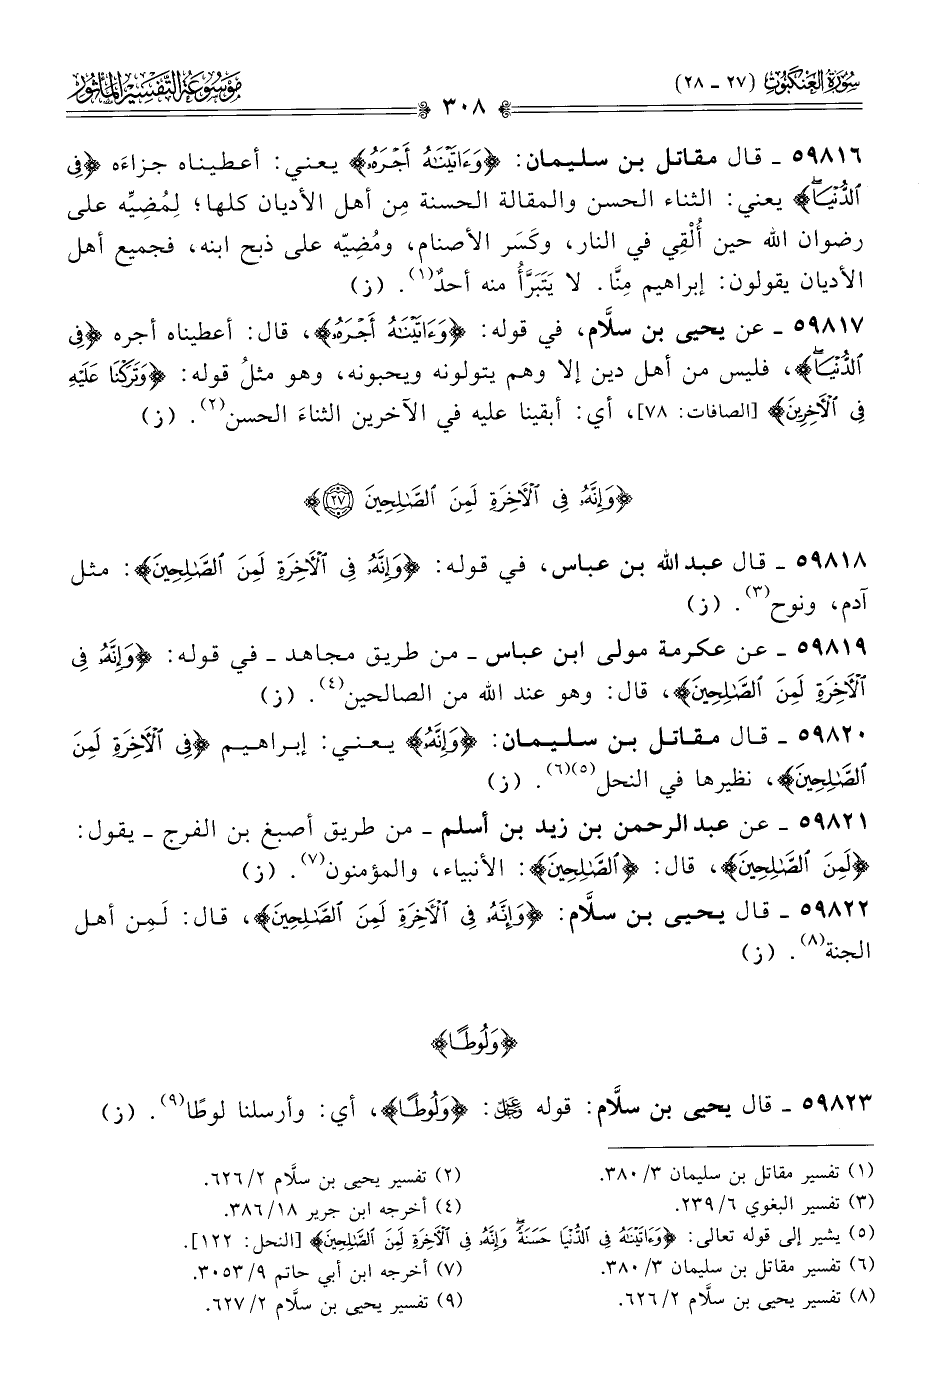 سُورَةُ العَنكَبُوتِ (٢٧ - ٢٨)
٣٠٨
مَوْسُوعَةُ التَّفْسِيرِ المَأْثُورِ
٥٩٨١٦ - قال مقاتل بن سليمان: ﴿وَءَاتَيْنَٰهُ أَجْرَهُۥ﴾ يعني: أعطيناه جزاءَه ﴿فِى
ٱلدُّنْيَاۖ﴾ يعني: الثناء الحسن والمقالة الحسنة مِن أهل الأديان كلها؛ لِمُضِيِّه على
رضوان الله حين أُلْقِي في النار، وكَسَر الأصنام، ومُضِيّه على ذبح ابنه، فجميع أهل
الأديان يقولون: إبراهيم مِنَّا. لا يَتَبَرَّأُ منه أحدٌ(١). (ز)
٥٩٨١٧ - عن يحيى بن سلَّام، في قوله: ﴿وَءَاتَيْنَٰهُ أَجْرَهُۥ﴾، قال: أعطيناه أجره ﴿فِى
ٱلدُّنْيَاۖ﴾، فليس من أهل دين إلا وهم يتولونه ويحبونه، وهو مثلُ قوله: ﴿وَتَرَكْنَا عَلَيْهِ
فِى ٱلْأَخِرِينَ﴾ [الصافات: ٧٨]، أي: أبقينا عليه في الآخرين الثناءَ الحسن(٢). (ز)
﴿وَإِنَّهُۥ فِى ٱلْأَخِرَةِ لَمِنَ ٱلصَّٰلِحِينَ ٢٧﴾
٥٩٨١٨ - قال عبد الله بن عباس، في قوله: ﴿وَإِنَّهُۥ فِى ٱلْأَخِرَةِ لَمِنَ ٱلصَّٰلِحِينَ﴾: مثل
آدم، ونوح(٣). (ز)
٥٩٨١٩ - عن عكرمة مولى ابن عباس - من طريق مجاهد - في قوله: ﴿وَإِنَّهُۥ فِى
ٱلْأَخِرَةِ لَمِنَ ٱلصَّٰلِحِينَ﴾، قال: وهو عند الله من الصالحين(٤). (ز)
٥٩٨٢٠ - قال مقاتل بن سليمان: ﴿وَإِنَّهُۥ﴾ يعني: إبراهيم ﴿فِى ٱلْأَخِرَةِ لَمِنَ
ٱلصَّٰلِحِينَ﴾، نظيرها في النحل(٥)(٦). (ز)
٥٩٨٢١ - عن عبد الرحمن بن زيد بن أسلم - من طريق أصبغ بن الفرج - يقول:
﴿لَمِنَ ٱلصَّٰلِحِينَ﴾، قال: ﴿ٱلصَّٰلِحِينَ﴾: الأنبياء، والمؤمنون(٧). (ز)
٥٩٨٢٢ - قال يحيى بن سلَّام: ﴿وَإِنَّهُۥ فِى ٱلْأَخِرَةِ لَمِنَ ٱلصَّٰلِحِينَ﴾، قال: لَمِن أهل
الجنة(٨). (ز)
﴿وَلُوطًا﴾
٥٩٨٢٣ - قال يحيى بن سلَّام: قوله ﷿: ﴿وَلُوطًا﴾، أي: وأرسلنا لوطًا(٩). (ز)
(١) تفسير مقاتل بن سليمان ٣/ ٣٨٠. (٢) تفسير يحيى بن سلَّام ٢/ ٦٢٦.
(٣) تفسير البغوي ٦/ ٢٣٩. (٤) أخرجه ابن جرير ١٨/ ٣٨٦.
(٥) يشير إلى قوله تعالى: ﴿وَءَاتَيْنَٰهُ فِى ٱلدُّنْيَا حَسَنَةًۖ وَإِنَّهُۥ فِى ٱلْأَخِرَةِ لَمِنَ ٱلصَّٰلِحِينَ﴾ [النحل: ١٢٢].
(٦) تفسير مقاتل بن سليمان ٣/ ٣٨٠. (٧) أخرجه ابن أبي حاتم ٩/ ٣٠٥٣.
(٨) تفسير يحيى بن سلَّام ٢/ ٦٢٦. (٩) تفسير يحيى بن سلَّام ٢/ ٦٢٧.